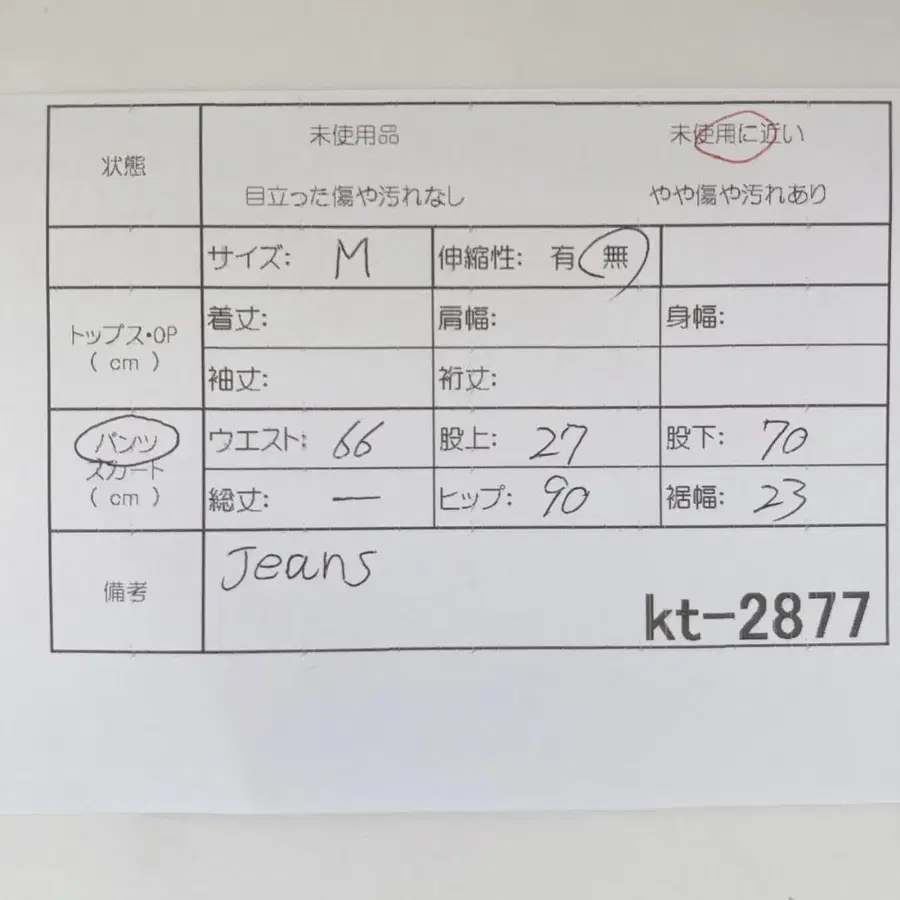 状態
未使用品 未使用に近い
目立った傷や汚れなし やや傷や汚れあり
サイズ: M 伸縮性: 有 無
トップス・OP
( cm )
着丈: 肩幅: 身幅:
袖丈: 裄丈:
パンツ
スカート
( cm )
ウエスト: 66 股上: 27 股下: 70
総丈: — ヒップ: 90 裾幅: 23
備考
Jeans
kt-2877